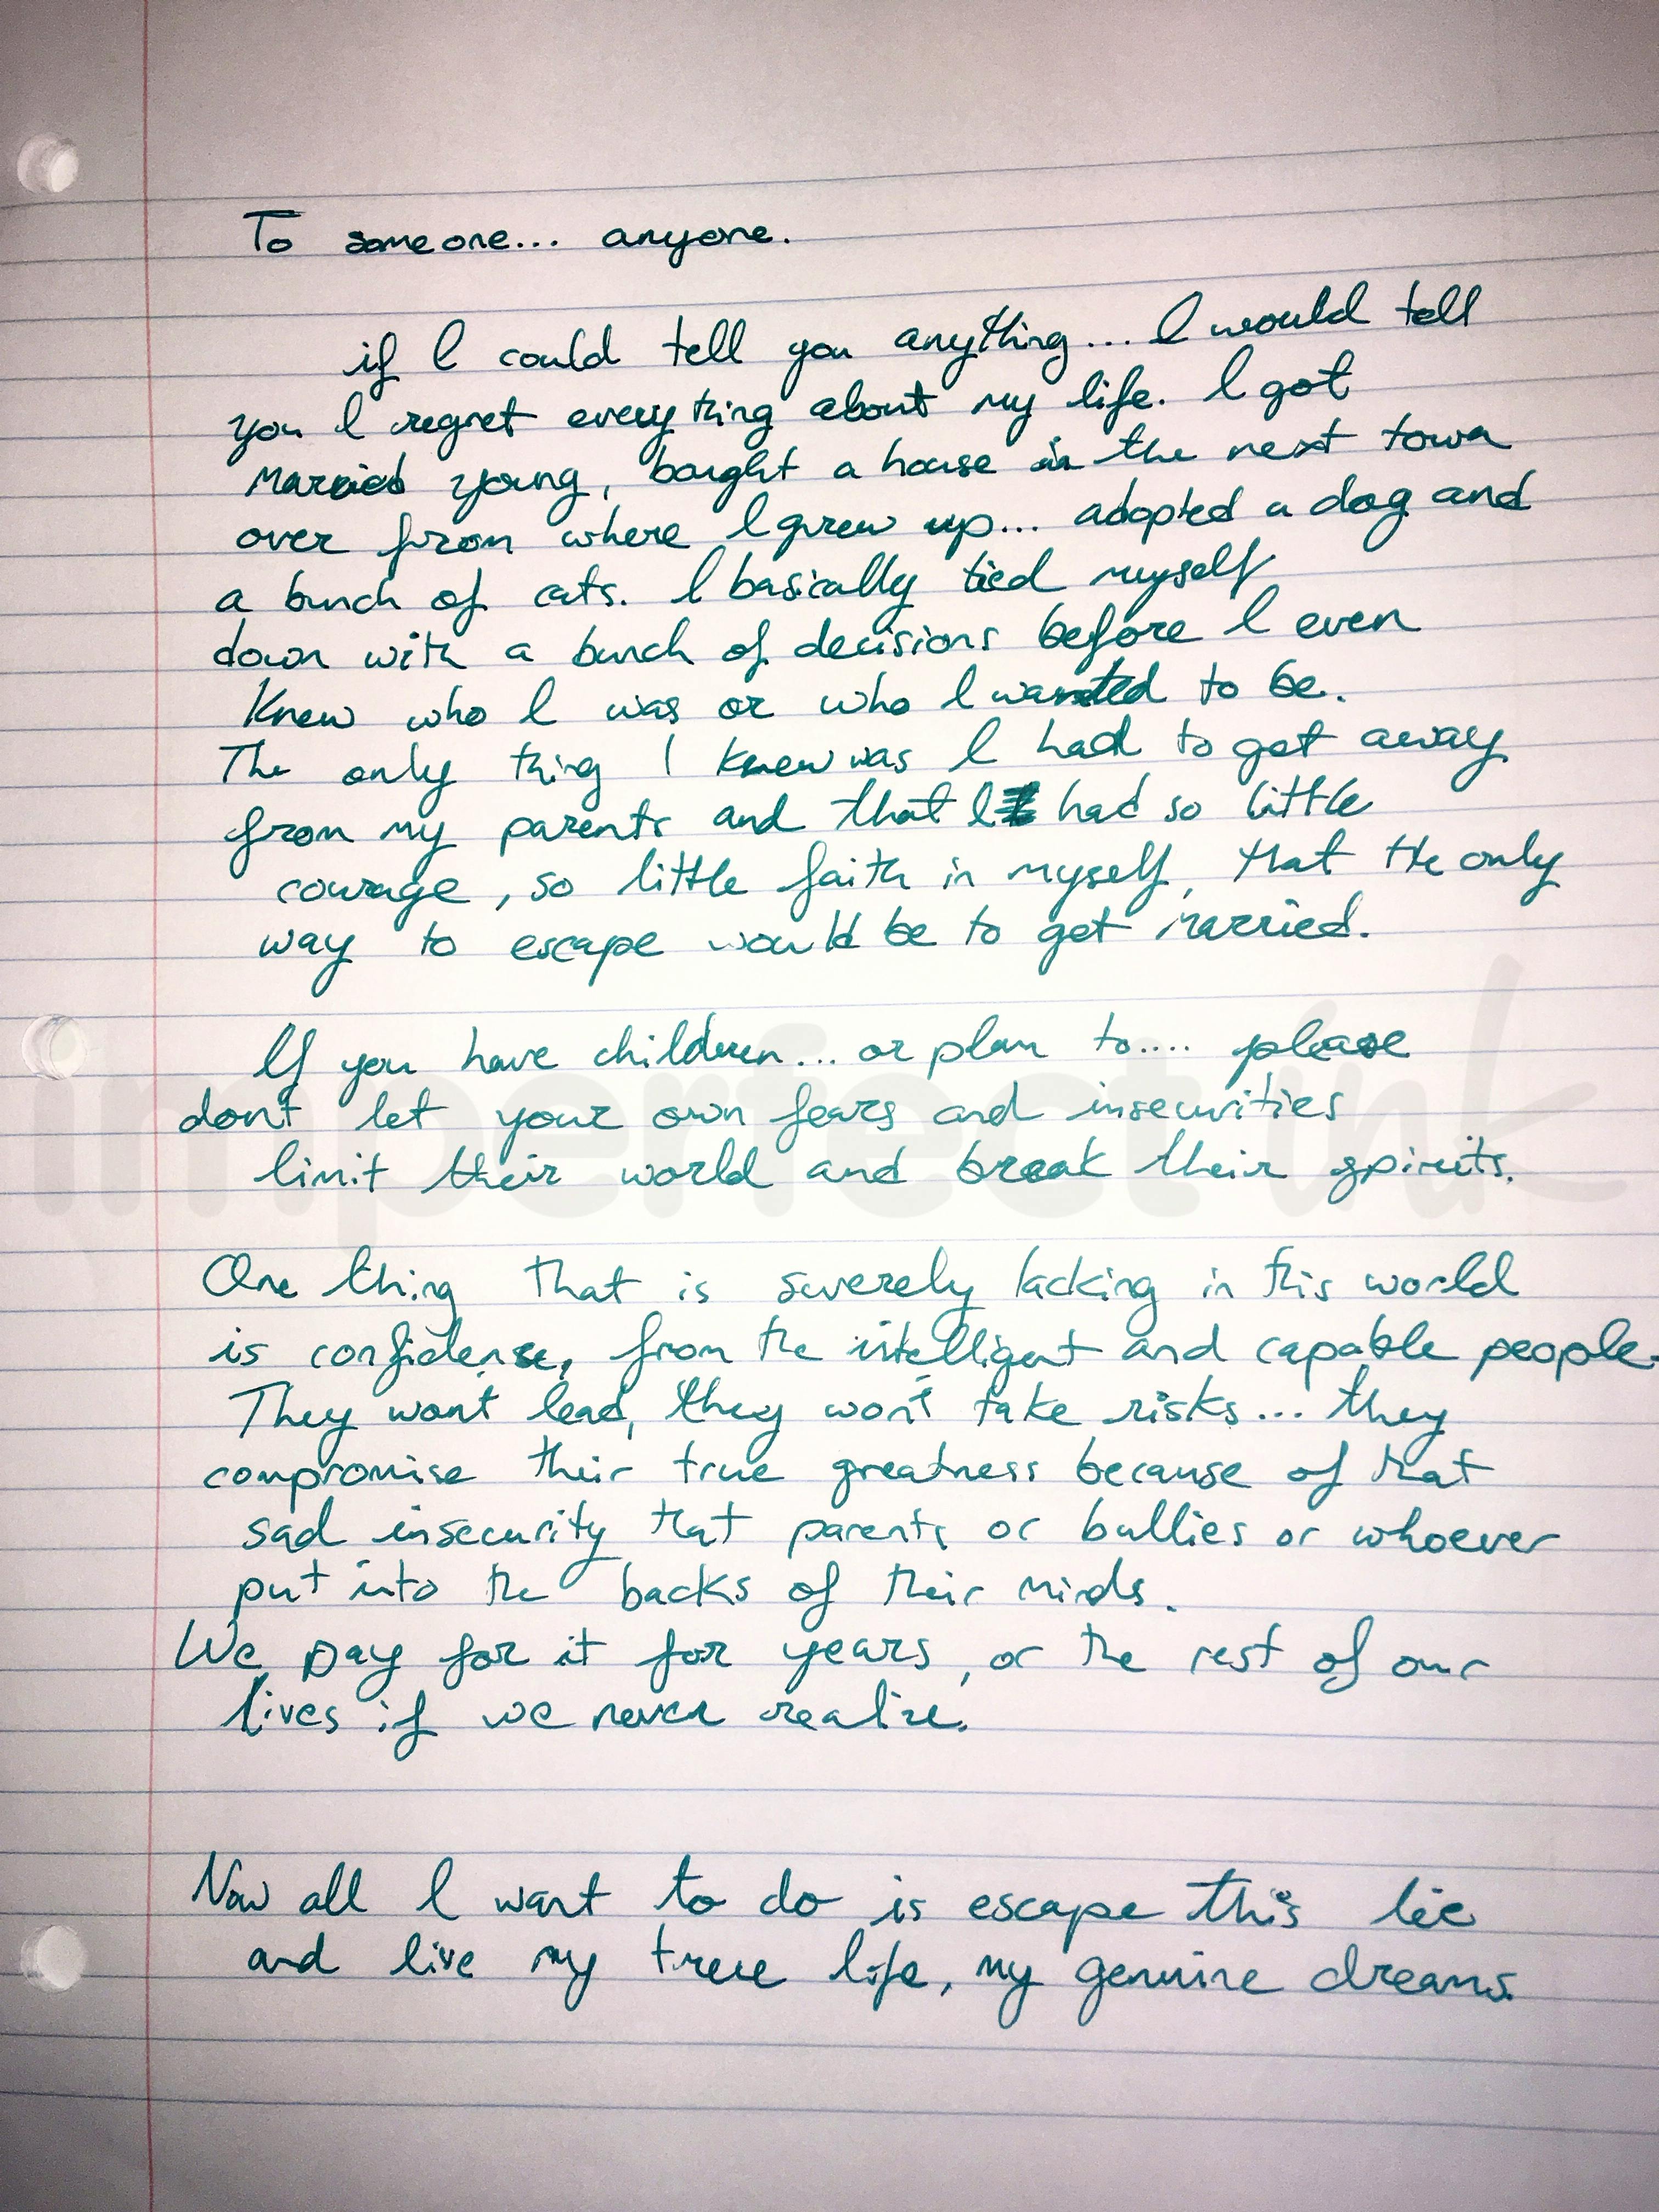 To someone... anyone.
if I could tell you anything... I would tell
you I regret everything about my life. I got
married young, bought a house in the next town
over from where I grew up... adopted a dog and
a bunch of cats. I basically tied myself
down with a bunch of decisions before I even
knew who I was or who I wanted to be.
The only thing I knew was I had to get away
from my parents and that I had so little
courage, so little faith in myself, that the only
way to escape would be to get married.
If you have children... or plan to.... please
dont let your own fears and insecurities
limit their world and break their spirits.
imperfect ink
One thing that is severely lacking in this world
is confidence, from the intelligent and capable people.
They won't lead, they won't take risks... they
compromise their true greatness because of that
sad insecurity that parents or bullies or whoever
put into the backs of their minds.
We pay for it for years, or the rest of our
lives if we never realize.
Now all I want to do is escape this lie
and live my true life, my genuine dreams.